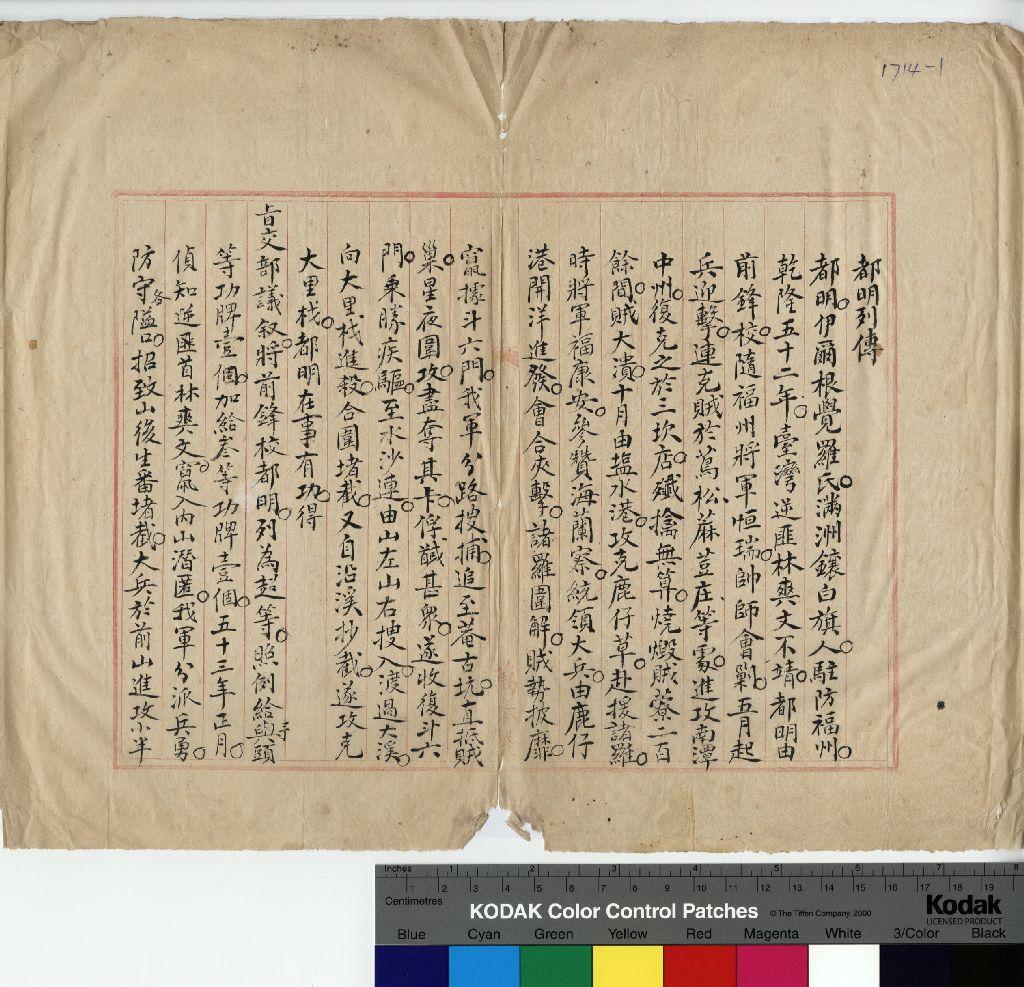 1714-1
都明列傳
都明。伊爾根覺羅氏。滿洲鑲白旗人。駐防福州。
乾隆五十二年。臺灣逆匪林爽文不靖。都明由
前鋒校。隨福州將軍恒瑞。帥師會剿。五月起
兵迎擊。連克賊於蔦松、蔴荳庄、等處。進攻南潭
中州。復克之於三坎店。殲擒無算。燒燬賊藔二百
餘間。賊大潰。十月由塩水港。攻克鹿仔草。赴援諸羅。
時將軍福康安。參贊海蘭察。統領大兵。由鹿仔
港開洋進發。會合夾擊。諸羅圍解。賊勢披靡。
竄據斗六門。我軍分路搜捕。追至菴古坑。直抵賊
巢。星夜圍攻。盡奪其卡。俘馘甚衆。遂收復斗六
門。乘勝疾驅。至水沙連。由山左山右搜入。渡過大溪。
向大里栈進殺。合圍堵截。又自沿溪抄截。遂攻克
大里栈。都明在事有功。得
旨交部議叙。將前鋒校都明。列為超等。照例給與頭
等功牌壹個。加給叁等功牌壹個。五十三年正月。
偵知逆匪首林爽文。竄入內山潛匿。我軍分派兵勇。
防守各隘口。招致山後生番堵截。大兵於前山進攻小半
Inches 1 2 3 4 5 6 7 8
Centimetres 1 2 3 4 5 6 7 8 9 10 11 12 13 14 15 16 17 18 19
KODAK Color Control Patches © The Tiffen Company, 2000 Kodak
LICENSED PRODUCT
Blue Cyan Green Yellow Red Magenta White 3/Color Black